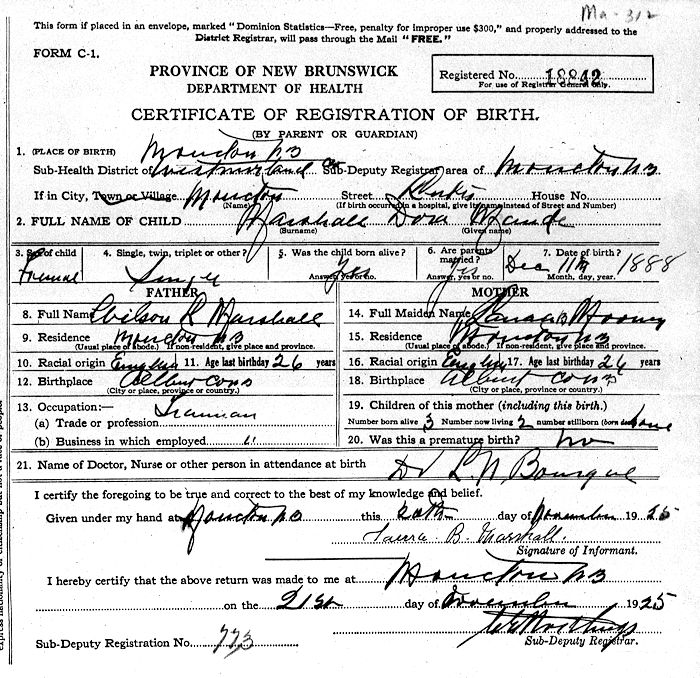 Ma-312
This form if placed in an envelope, marked "Dominion Statistics—Free, penalty for improper use $300," and properly addressed to the
District Registrar, will pass through the Mail "FREE."
FORM C-1.
PROVINCE OF NEW BRUNSWICK
DEPARTMENT OF HEALTH
Registered No. 18892
For use of Registrar General only.
CERTIFICATE OF REGISTRATION OF BIRTH.
(BY PARENT OR GUARDIAN)
1. (PLACE OF BIRTH) Moncton NB
Sub-Health District of Westmorland Co Sub-Deputy Registrar area of Moncton NB
If in City, Town or Village Moncton Street House No.
(Name) (If birth occurred in a hospital, give its name instead of Street and Number)
2. FULL NAME OF CHILD Marshall Dora Maude
(Surname) (Given name)
3. Sex of child 4. Single, twin, triplet or other? 5. Was the child born alive? 6. Are parents married? 7. Date of birth?
Female Single Yes Yes Dec 11th 1888
Answer, yes or no. Answer, yes or no. Month, day, year.
FATHER MOTHER
8. Full Name Wilson R Marshall 14. Full Maiden Name Laura B Mooney
9. Residence Moncton NB 15. Residence Moncton NB
(Usual place of abode.) If non-resident, give place and province. (Usual place of abode.) If non-resident, give place and province.
10. Racial origin English 11. Age last birthday 26 years 16. Racial origin English 17. Age last birthday 26 years
12. Birthplace Albert Co NB 18. Birthplace Albert Co NB
(City or place, province or country.) (City or place, province or country.)
13. Occupation:— 19. Children of this mother (including this birth.)
(a) Trade or profession Trainman Number born alive 3 Number now living 2 number stillborn (born dead) none
(b) Business in which employed " 20. Was this a premature birth? no
21. Name of Doctor, Nurse or other person in attendance at birth Dr L. N Bourque
I certify the foregoing to be true and correct to the best of my knowledge and belief.
Given under my hand at Moncton NB this 20th day of November 1925
Laura B. Marshall.
Signature of Informant.
I hereby certify that the above return was made to me at Moncton NB
on the 21st day of November 1925
Sub-Deputy Registrar.
Sub-Deputy Registration No. 773